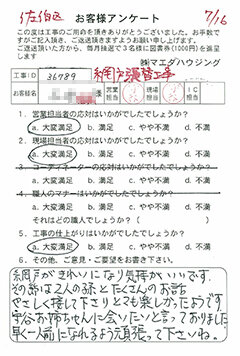 佐伯区
お客様アンケート
7/16
この度は工事のご用命を頂きありがとうございました。お手数で
すがご記入頂き、ご返送頂きますようお願い申し上げます。
ご返送頂いた方から、毎月抽選で3名様に図書券(1000円)を進呈
します
㈱マエダハウジング
工事ID 36989 網戸張替工事
お客様名 営業担当 現場担当 工事担当
1. 営業担当者の応対はいかがでしたでしょうか?
a. 大変満足 b. 満足 c. やや不満 d. 不満
2. 現場担当者の応対はいかがでしたでしょうか?
a. 大変満足 b. 満足 c. やや不満 d. 不満
3. コーディネーターの応対はいかがでしたでしょうか?
a. 大変満足 b. 満足 c. やや不満 d. 不満
4. 職人のマナーはいかがでしたでしょうか?
a. 大変満足 b. 満足 c. やや不満 d. 不満
それはどの職人でしょうか? ( )
5. 工事の仕上がりはいかがでしたでしょうか?
a. 大変満足 b. 満足 c. やや不満 d. 不満
6. その他、ご意見・ご要望をお書き下さい。
網戸がきれいになり気持がいいです。
その節は2人の孫とたくさんのお話
やさしく接して下さりとても楽しかったようです
守谷お姉ちゃんに会いたいと言っておりました
早く一人前になれるよう頑張って下さいね。